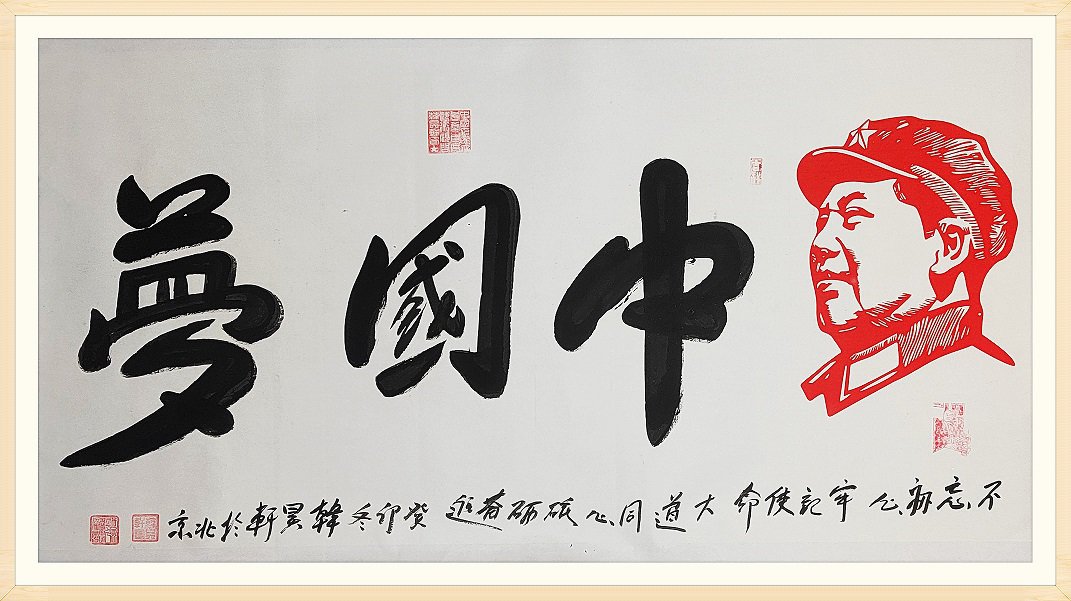 中國夢
不忘初心牢記使命大道同心砥砺奋進癸卯冬韓昊軒於北京